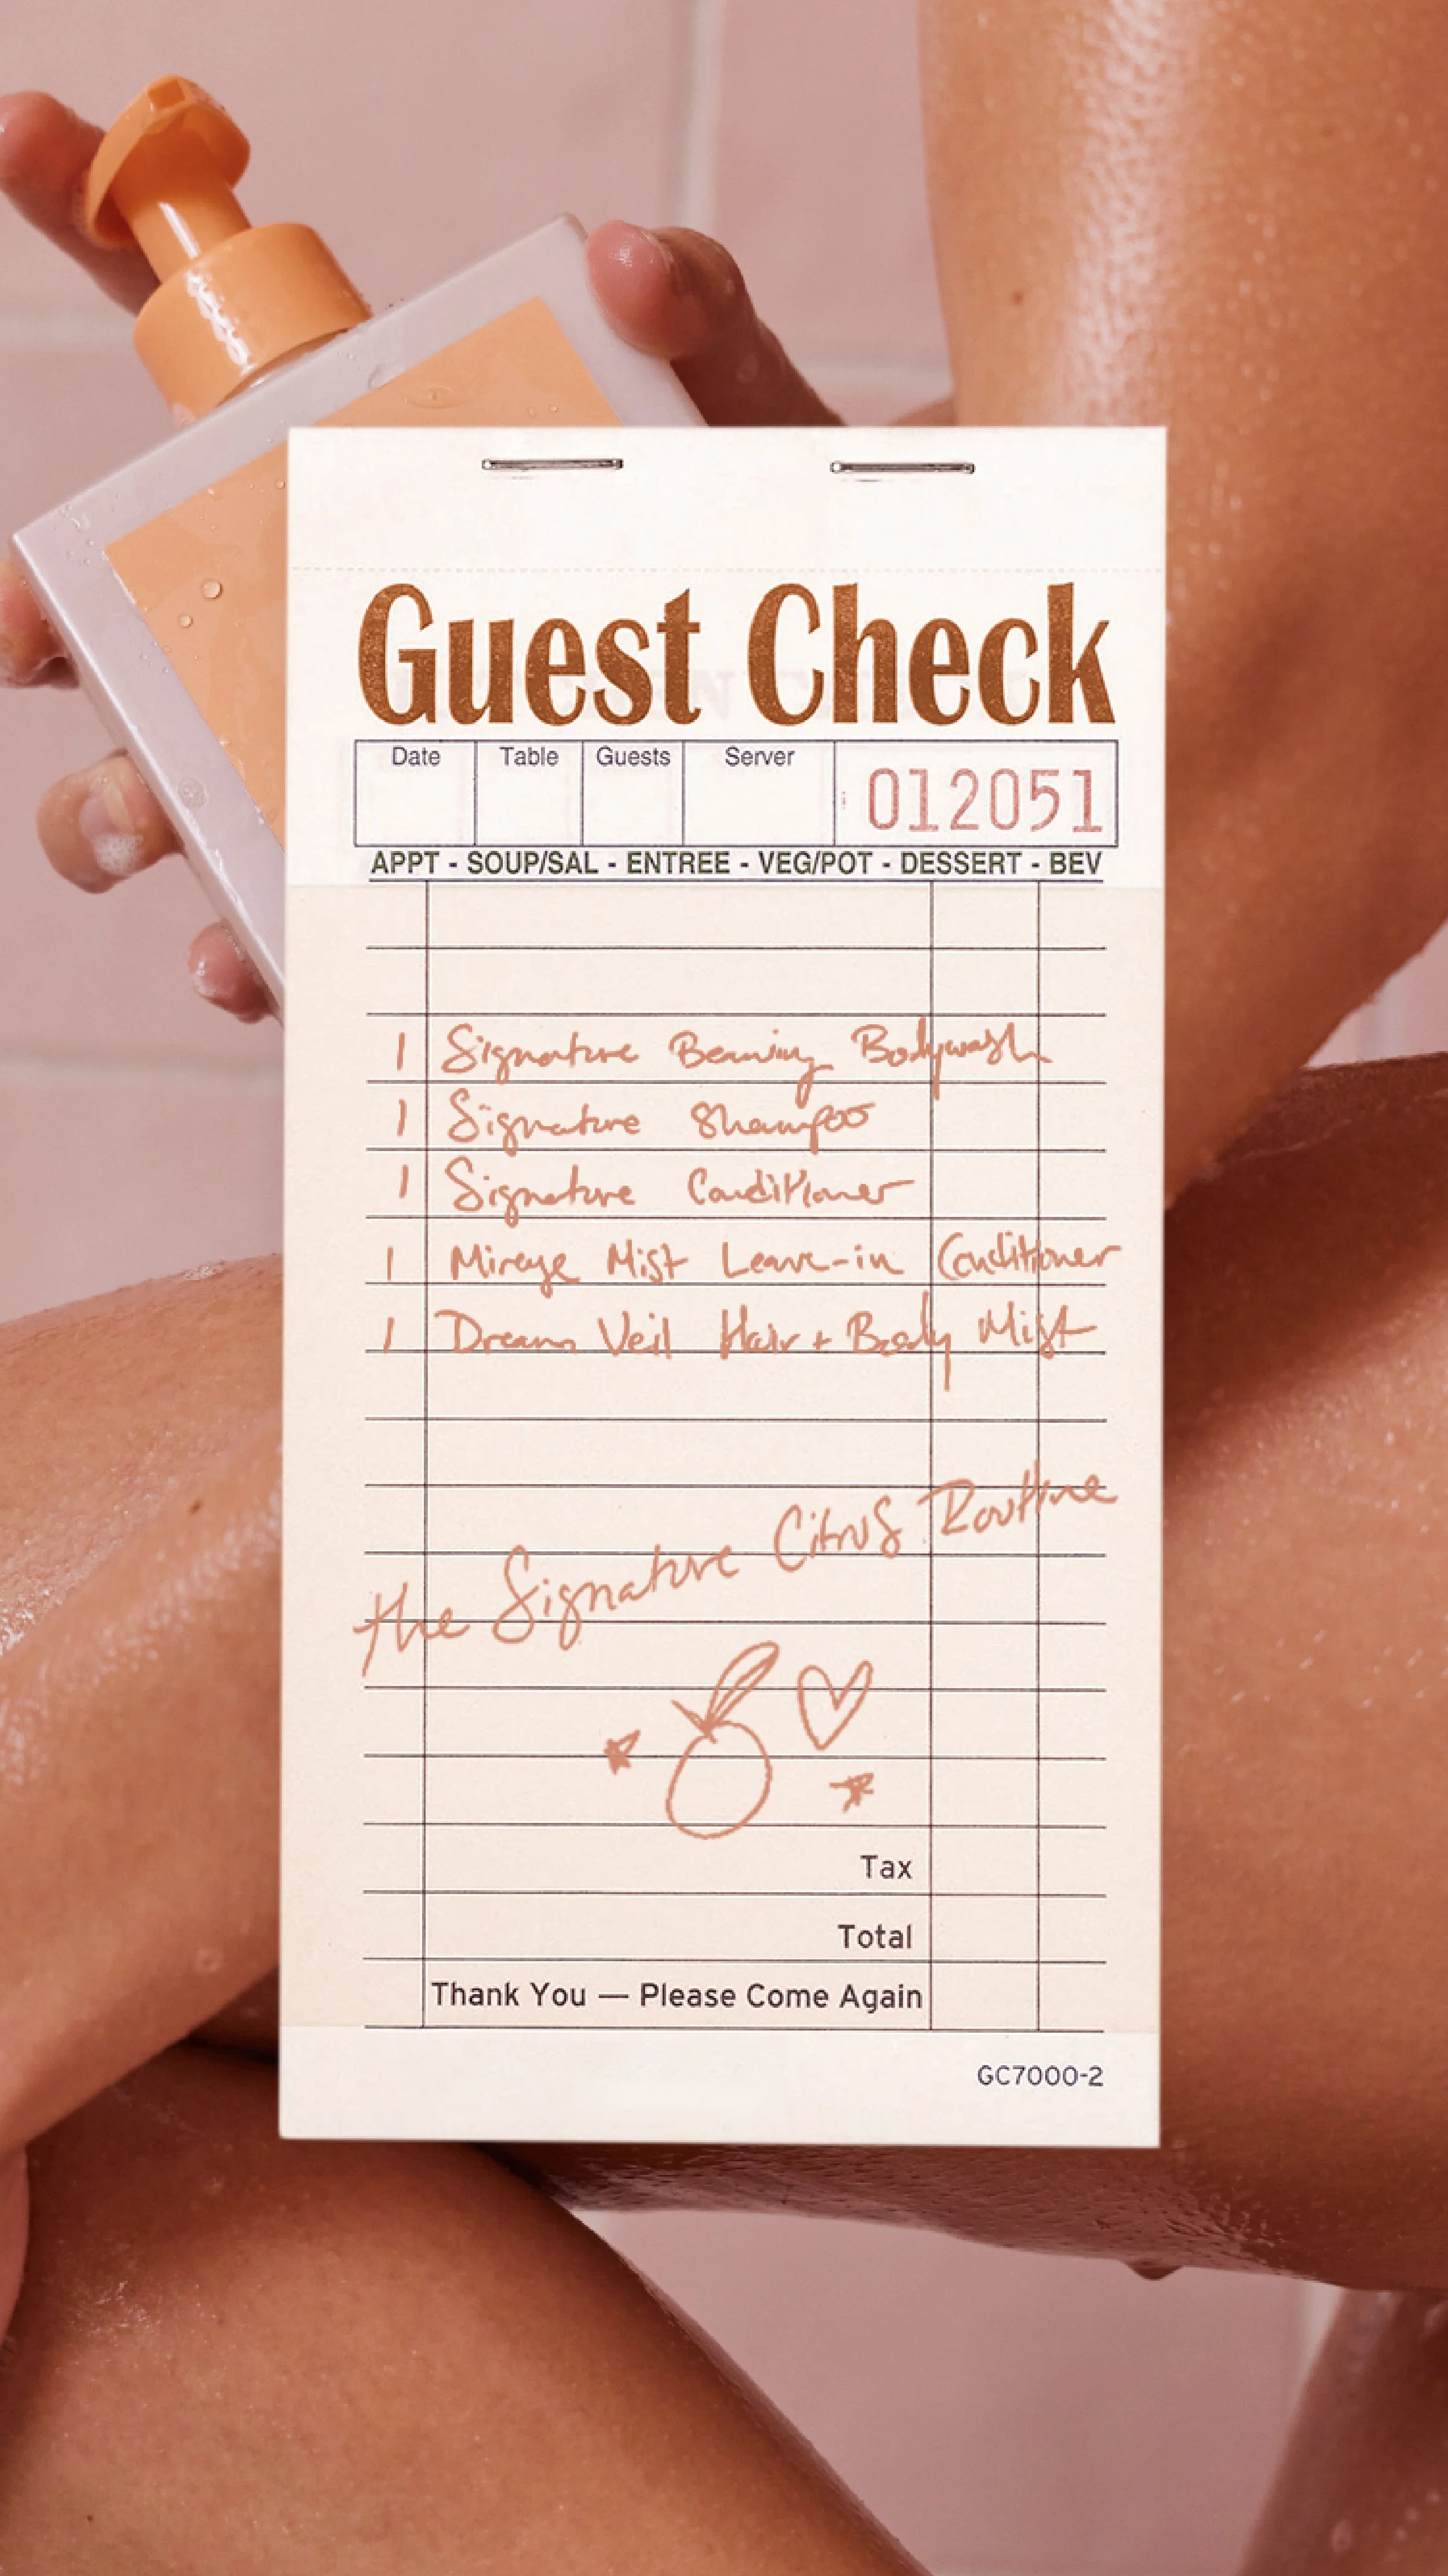 Guest Check
Date Table Guests Server 012051
APPT - SOUP/SAL - ENTREE - VEG/POT - DESSERT - BEV
1 Signature Beaming Bodywash
1 Signature Shampoo
1 Signature Conditioner
1 Mirage Mist Leave-in Conditioner
1 Dream Veil Hair + Body Mist
the Signature Citrus Routine
Tax
Total
Thank You — Please Come Again
GC7000-2